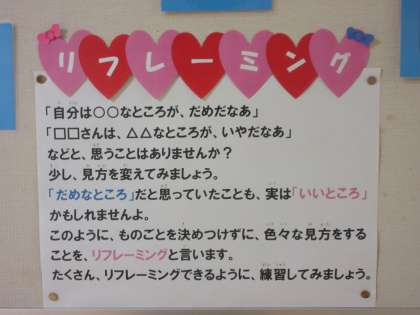 リフレーミング
「自分は○○なところが、だめだなあ」
「□□さんは、△△なところが、いやだなあ」
などと、思うことはありませんか？
少し、見方を変えてみましょう。
「だめなところ」だと思っていたことも、実は「いいところ」
かもしれませんよ。
このように、ものごとを決めつけずに、色々な見方をする
ことを、リフレーミングと言います。
たくさん、リフレーミングできるように、練習してみましょう。